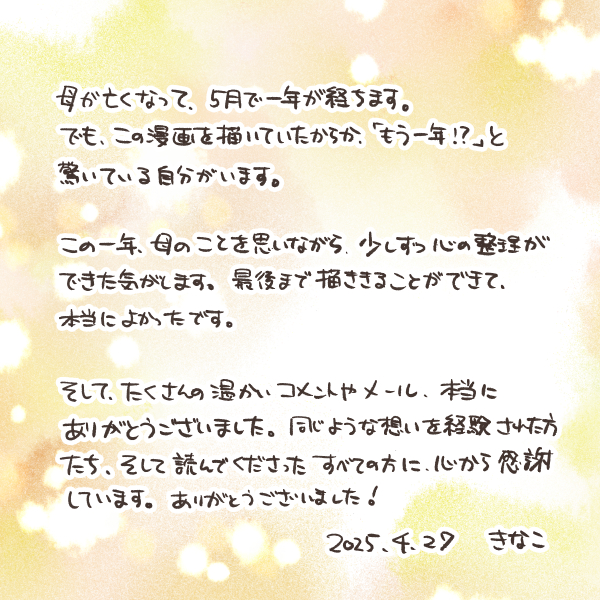 母が亡くなって、5月で一年が経ちます。
でも、この漫画を描いていたからか、「もう一年!?」と
驚いている自分がいます。
この一年、母のことを思いながら、少しずつ心の整理が
できた気がします。最後まで描ききることができて、
本当によかったです。
そして、たくさんの温かいコメントやメール、本当に
ありがとうございました。同じような想いを経験された方
たち、そして読んでくださったすべての方に、心から感謝
しています。ありがとうございました!
2025.4.27 きなこ